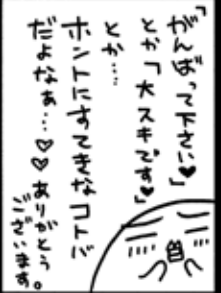 「がんばって下さい♥」
とか「大スキです♥」
とか…
ホントにすてきなコトバ
だよなぁ…♡♡ありがとう
ございます。